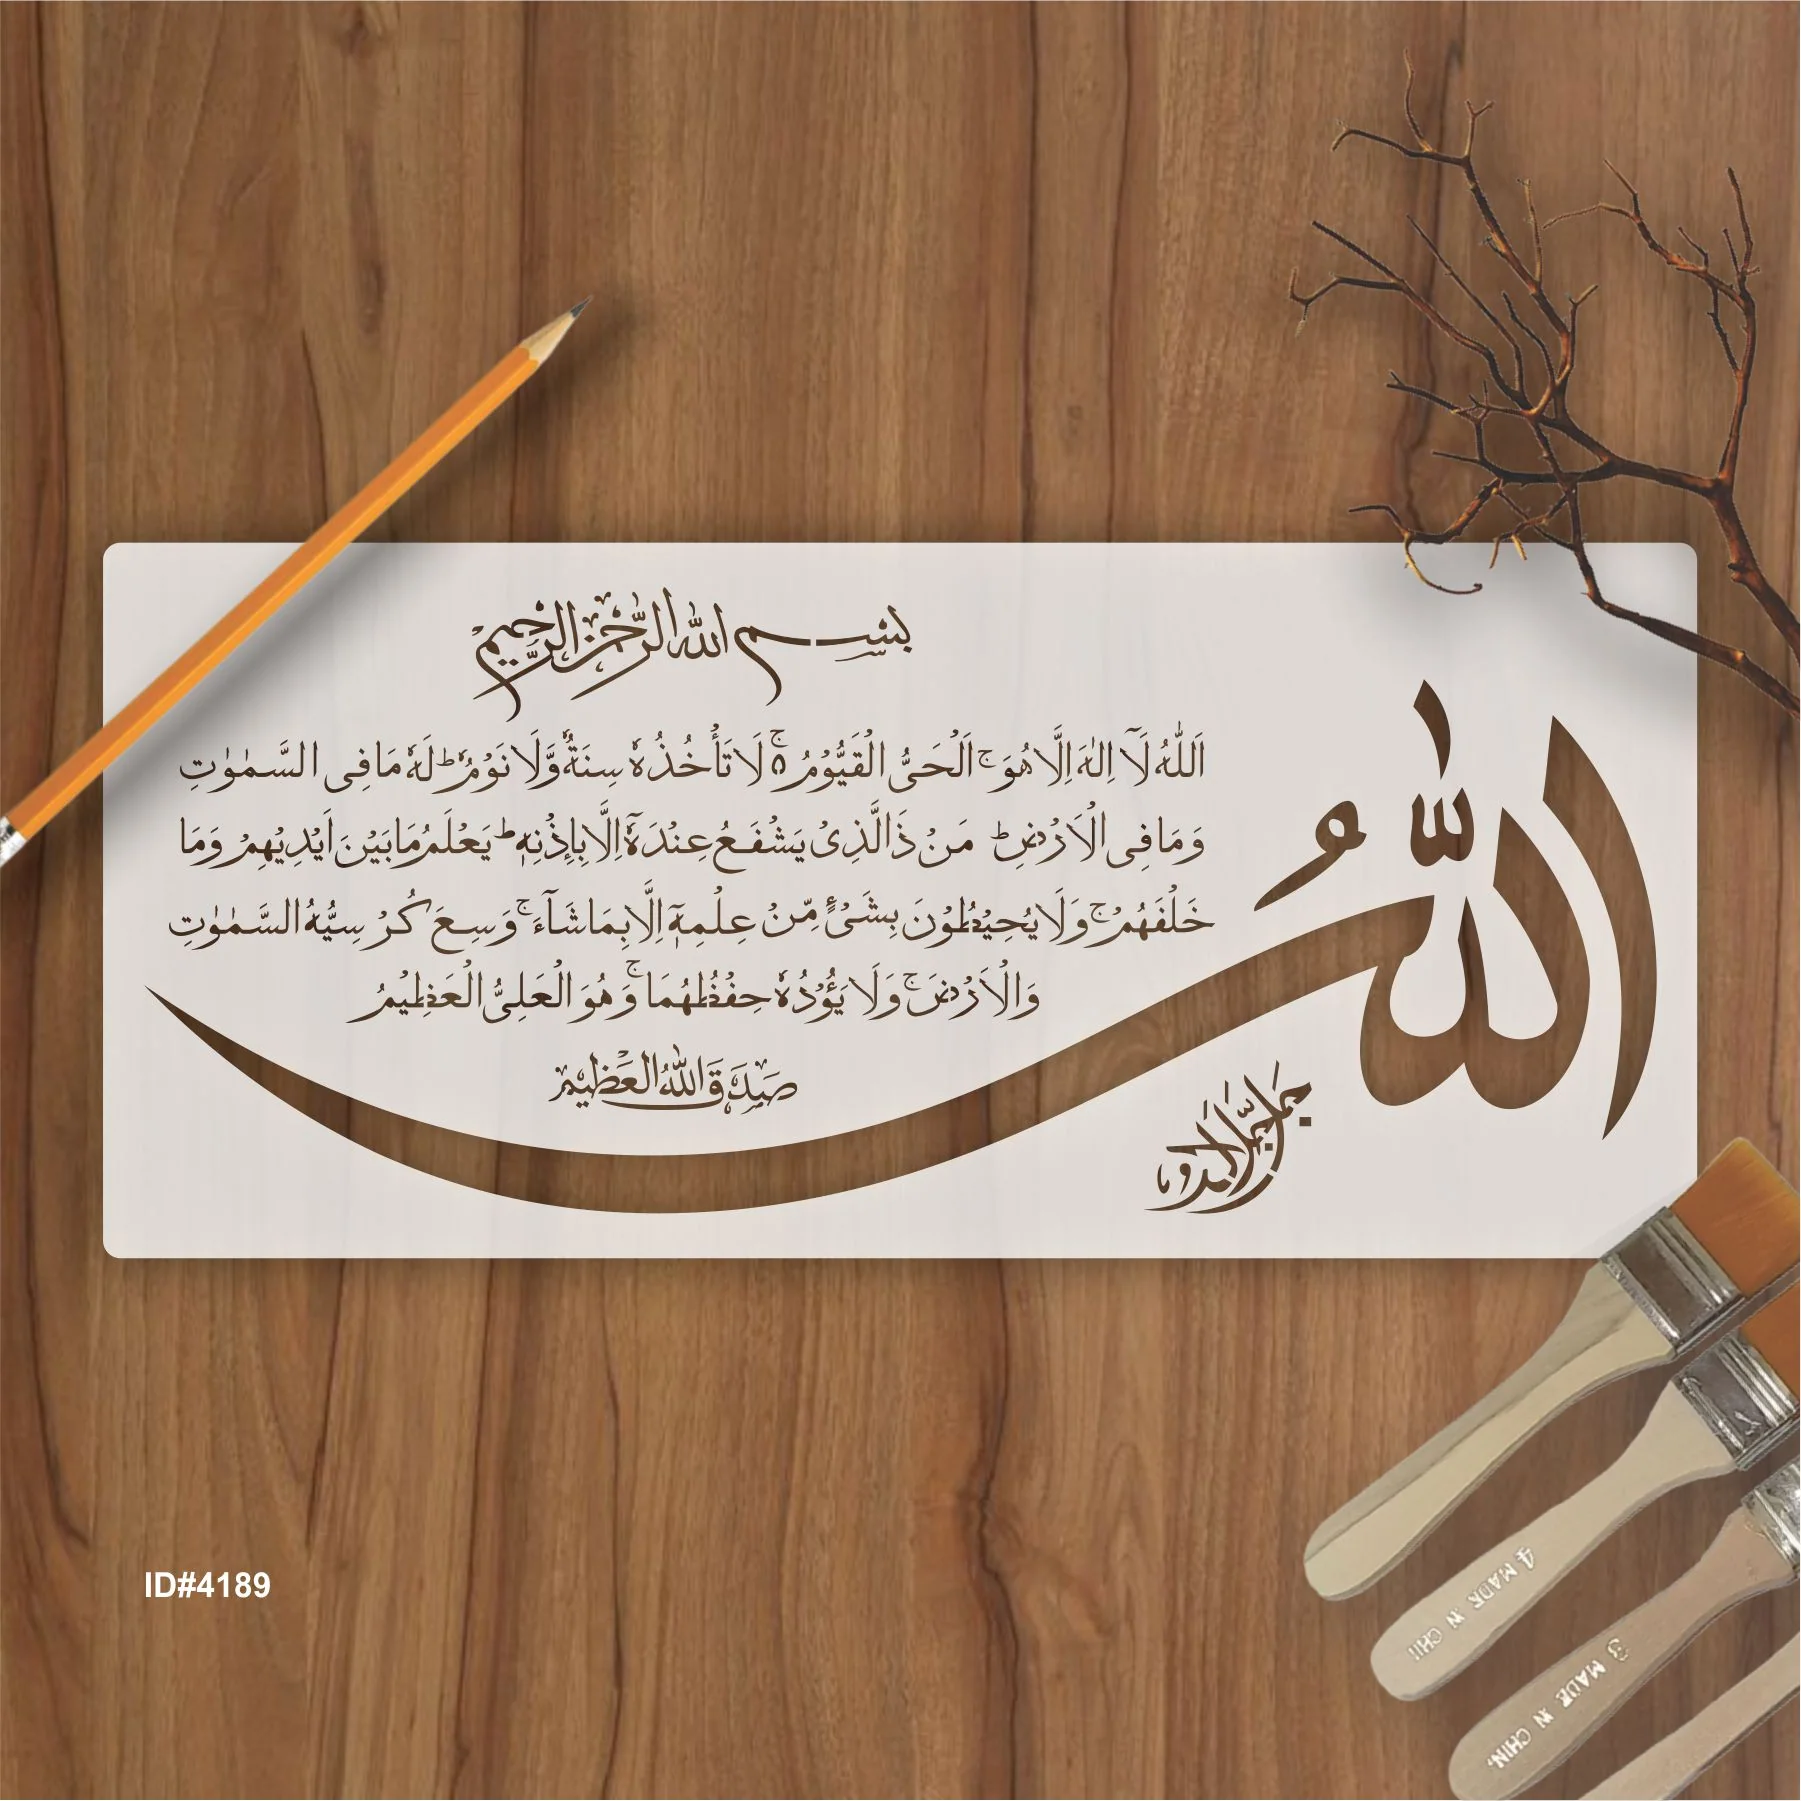 بِسْمِ اللهِ الرَّحْمٰنِ الرَّحِيْمِ
اَللّٰهُ لَآ اِلٰهَ اِلَّا هُوَ ۚ اَلْحَىُّ الْقَيُّوْمُ ۵ۚ لَا تَأْخُذُهٗ سِنَةٌ وَّلَا نَوْمٌ ؕ لَهٗ مَا فِى السَّمٰوٰتِ
وَمَا فِى الْاَرْضِ ؕ مَنْ ذَا الَّذِىْ يَشْفَعُ عِنْدَهٗٓ اِلَّا بِاِذْنِهٖ ؕ يَعْلَمُ مَا بَيْنَ اَيْدِيْهِمْ وَمَا
خَلْفَهُمْ ۚ وَلَا يُحِيْطُوْنَ بِشَىْءٍ مِّنْ عِلْمِهٖٓ اِلَّا بِمَا شَآءَ ۚ وَسِعَ كُرْسِيُّهُ السَّمٰوٰتِ
وَالْاَرْضَ ۚ وَلَا يَؤُدُهٗ حِفْظُهُمَا ۚ وَهُوَ الْعَلِىُّ الْعَظِيْمُ
صَدَقَ اللهُ الْعَظِيْم
اللهُ
جل جلاله
ID#4189
4 MADE IN CHI
3 MADE IN CHIN